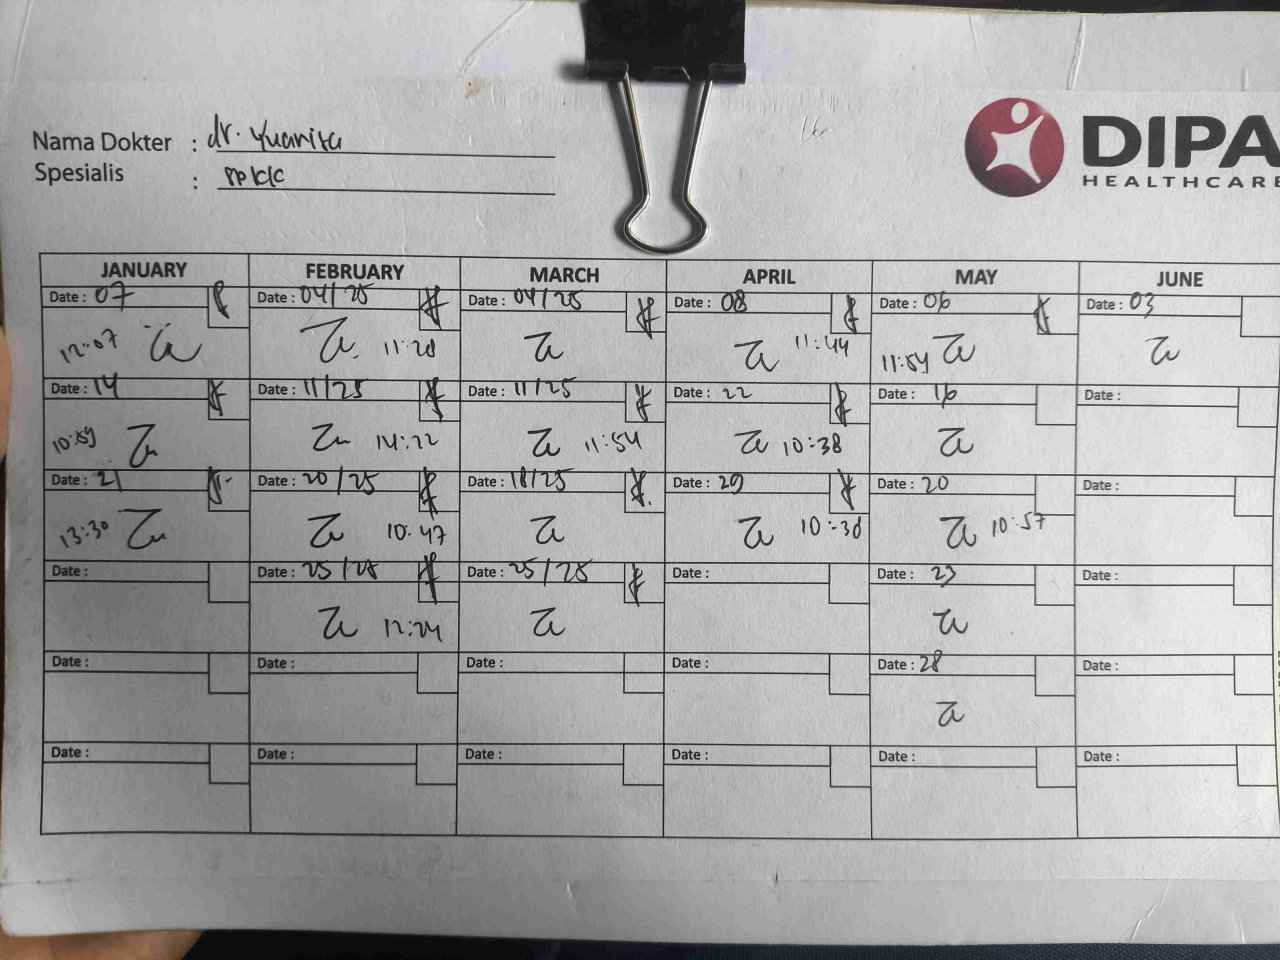 Nama Dokter : dr. Yuanita
Spesialis :
DIPA
HEALTHCARE
JANUARY FEBRUARY MARCH APRIL MAY JUNE
Date : 07 Date : 04/25 Date : 04/25 Date : 08 Date : 06 Date : 03
12:07 11:20 11:44 11:54
Date : 14 Date : 11/25 Date : 11/25 Date : 22 Date : 16 Date :
10:59 14:22 11:54 10:38
Date : 21 Date : 20/25 Date : 18/25 Date : 29 Date : 20 Date :
13:30 10:47 10:30 10:57
Date : Date : 25/25 Date : 25/25 Date : Date : 23 Date :
12:24
Date : Date : Date : Date : Date : 28 Date :
Date : Date : Date : Date : Date : Date :